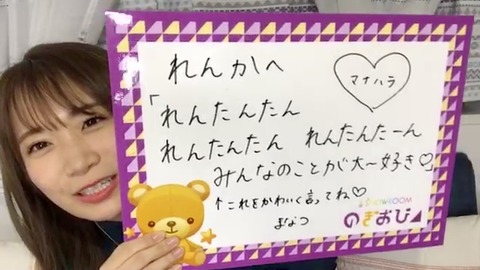 れんかへ
マナハラ
「れんたんたん
れんたんたん れんたんたーん
みんなのことが大〜好き♡」
↑これをかわいく言ってね♡
まなつ
SHOWROOM
のぎおび